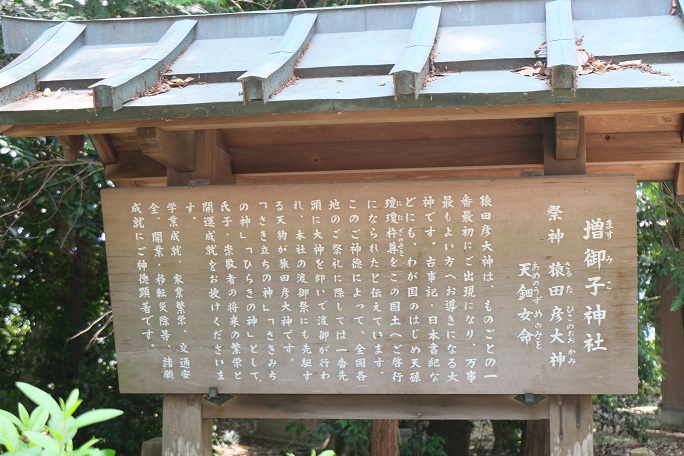 増御子神社
ますみこ
祭神 猿田彦大神
さるたひこのおおかみ
天鈿女命
あめのうずめのみこと
猿田彦大神は、ものごとの一
番最初にご出現になり、万事
最もよい方へお導きになる大
神です。古事記・日本書紀な
どにも、わが国のはじめ天孫
瓊瓊杵尊をこの国土へご啓行
ににぎのみこと
になられたと伝えています。
このご神徳によって、全国各
地のご祭礼に際しては一番先
頭に大神を仰いで渡御が行わ
れ、本社の渡御祭にも先駆す
る天狗が猿田彦大神です。
「さき立ちの神」「さきみち
の神」「ひらきの神」として、
氏子、崇敬者の将来の繁栄と
開運成就をお授けくださいま
す。
学業成就、家業繁栄、交通安
全、開業、移転災除等、諸願
成就にご神徳顕著です。